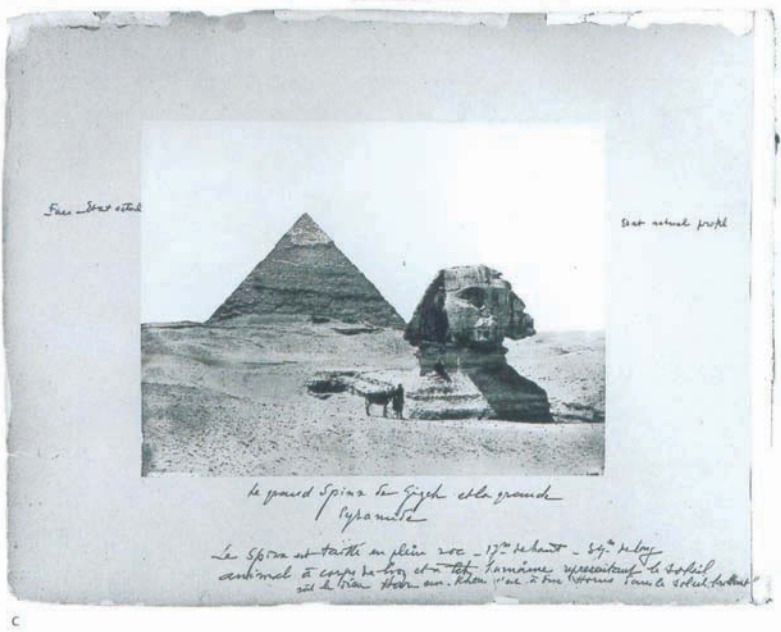 Face - Etat actuel
Etat actuel profil
Le grand Spinx de Gizeh et la grande
Pyramide
Le Spinx est taillé en plein roc - 17m de haut - de long
animal à corps de lion et à tête humaine représentant le soleil
c'est à dire "Horus dans le soleil
C